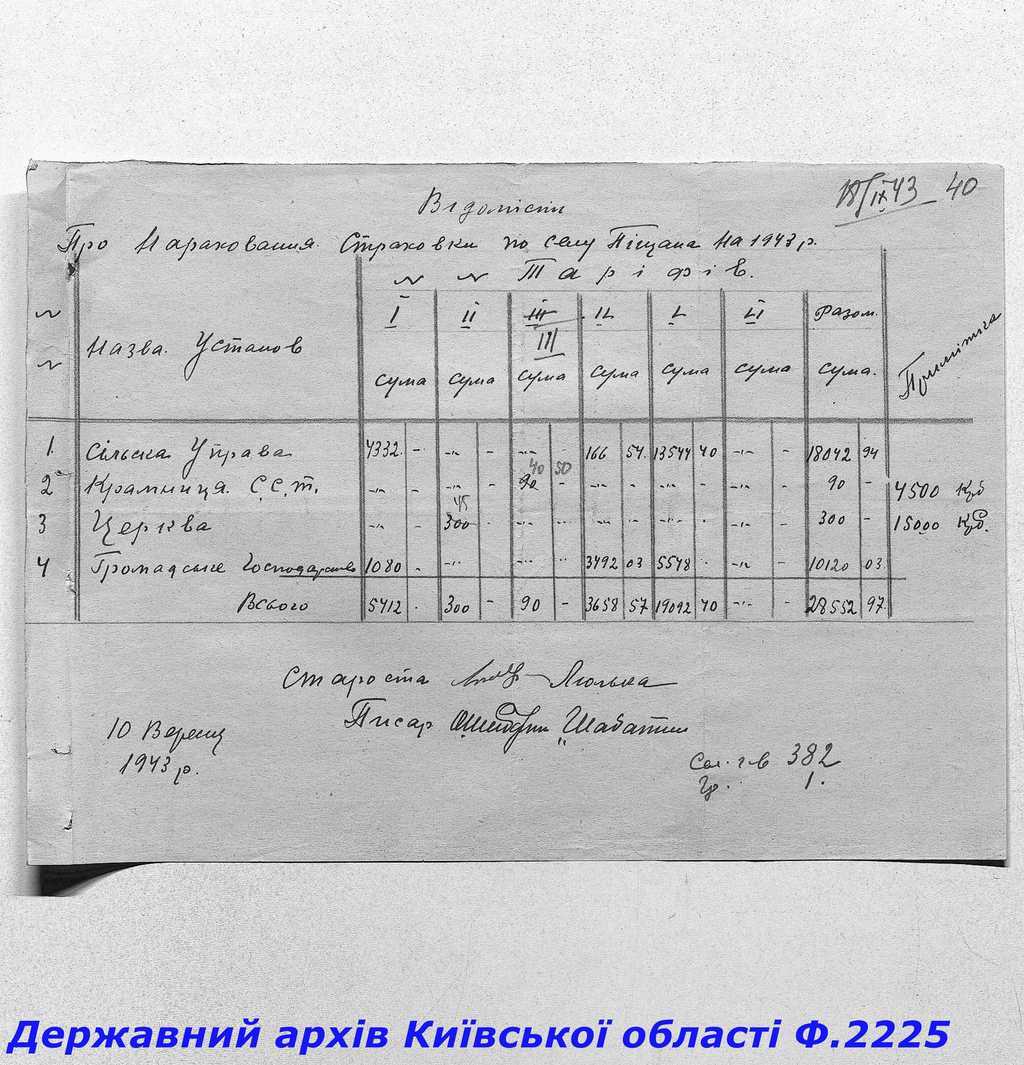 18/IX 43 40
Відомість
Про Нараховання Страховки по селу Піщана на 1943 р.
N N Тарифів.
N N Назва Установ I II III III IV V VI Разом. Примітка
сума сума сума сума сума сума сума.
1. Сільска Управа 4332. - -"- -"- 166 54. 13544 40 -"- - 18042 94
40 50
2 Крамниця С.С.т. -"- - -"- 90 - -"- - -"- - -"- - 90 - 4500 куб
45
3 Церква -"- - 300 - -"- -"- - -"- - -"- - 300 - 15000 куб.
4 Громадське Господарство 1080 - -"- -"- 3492 03 5548 - -"- - 10120 03
Всього 5412 . 300 - 90 - 3658 57 19092 40 -"- - 28552 97
Староста Люлька
Писар Шабатин
10 Вересня
1943 р.
382
1.
Державний архів Київської області Ф.2225